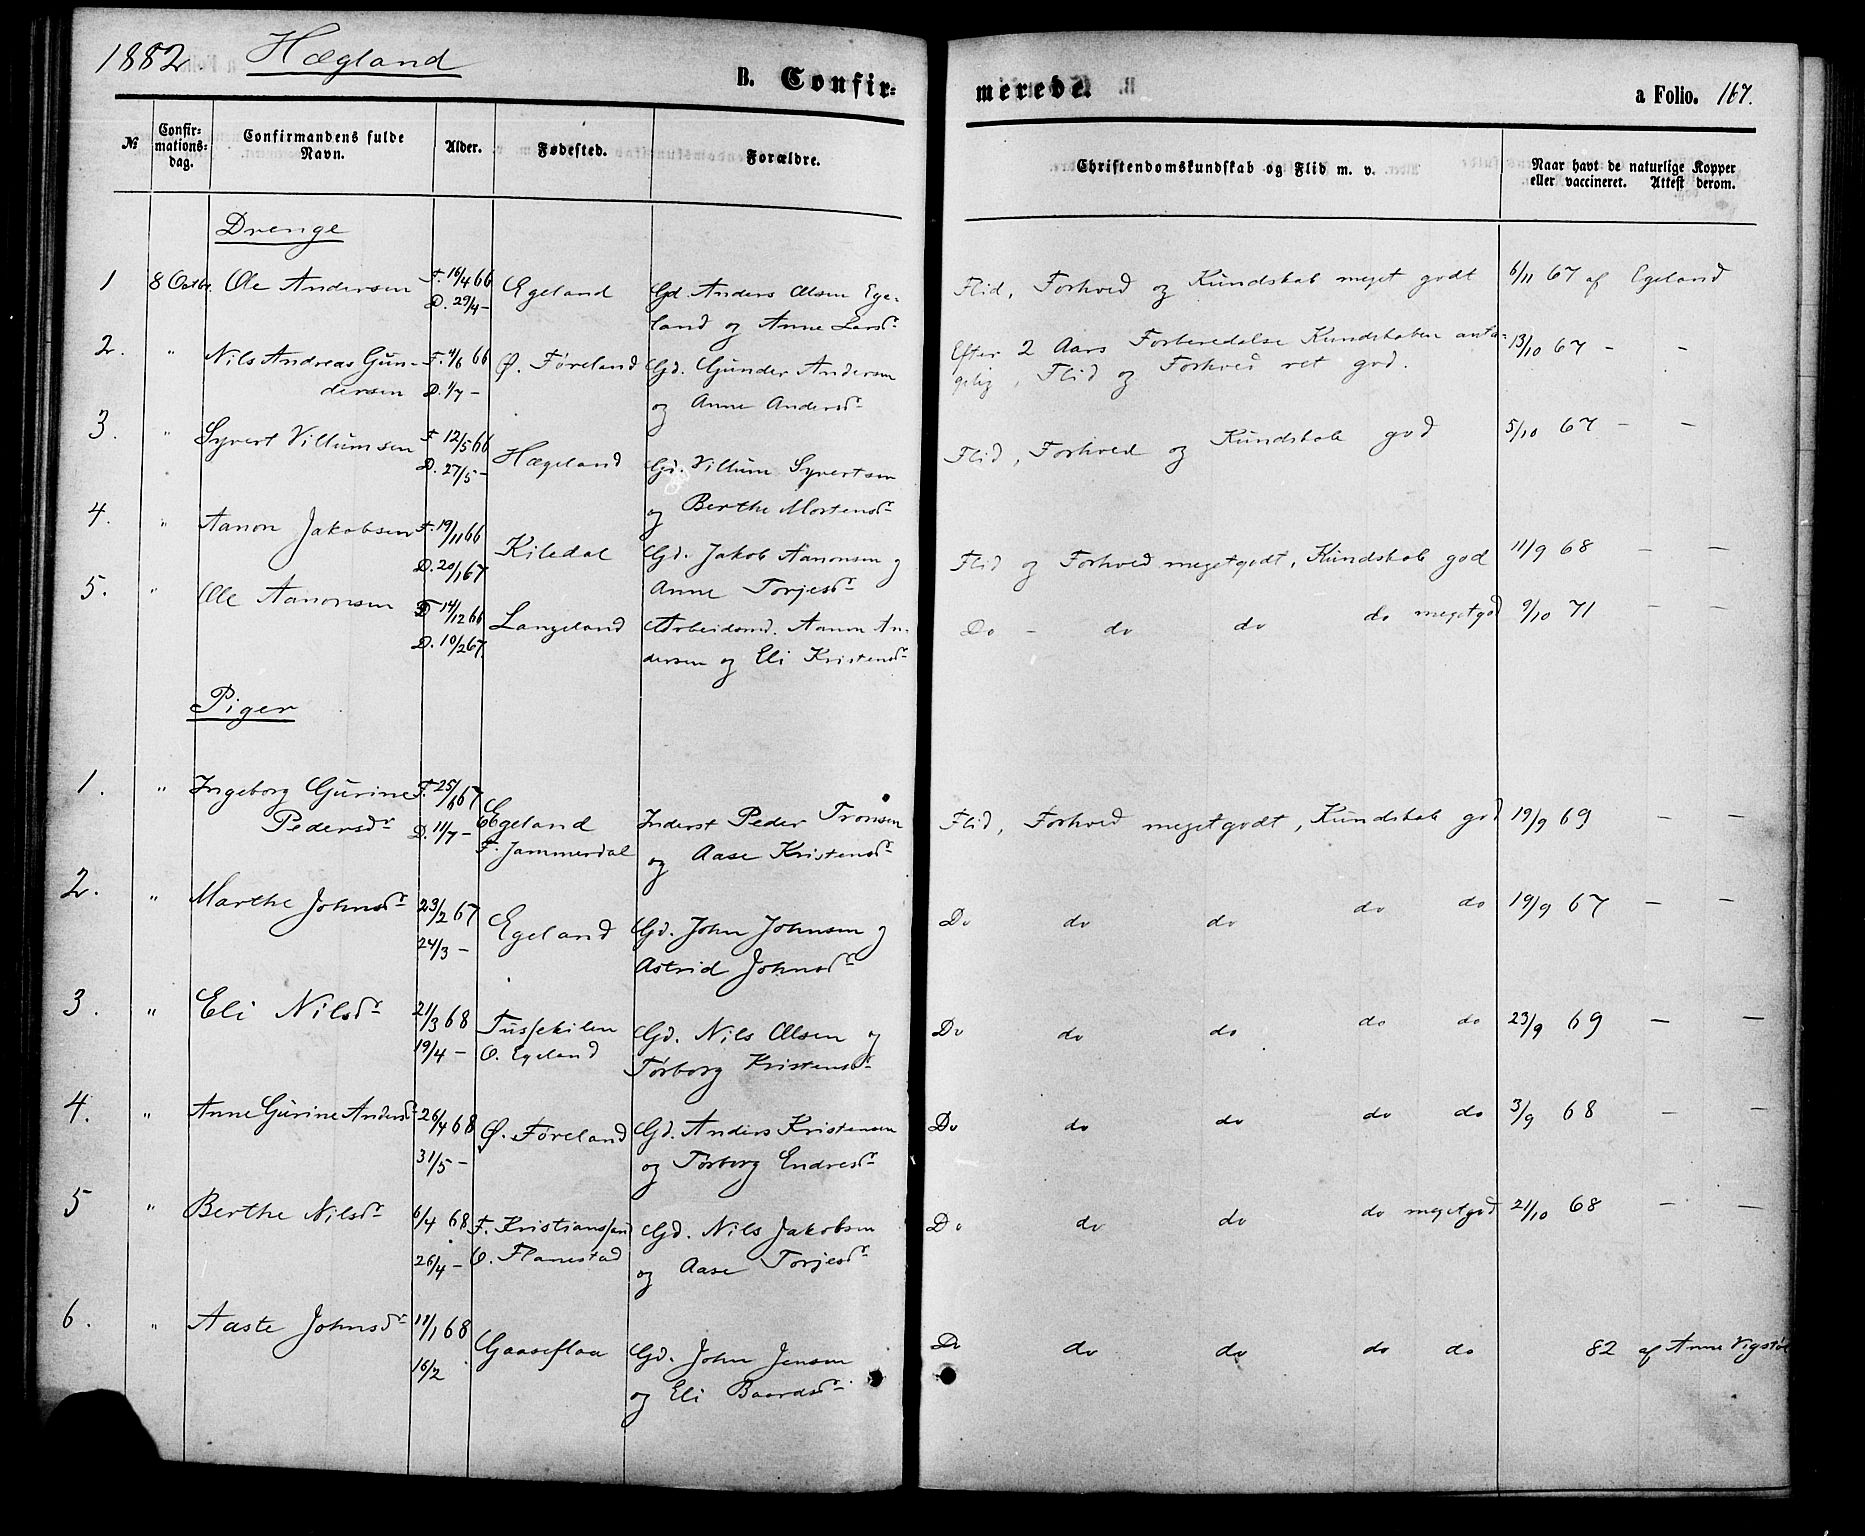 1882 Hægland
B. Confirmerede.
a Folio. 167.
№ Confirmationsdag. Confirmandens fulde Navn. Alder. Fødested. Forældre. Christendomskundskab og Flid m. v. Naar havt de naturlige Kopper eller vaccineret. Attest derom.
Drenge
1 8 Octbr. Ole Andersen F. 16/4 66 Egeland Gd. Anders Olsen Ege- Flid, Forhold og Kundskab meget godt 6/11 67 af Egeland
D. 29/4 - land og Anne Larsdr
2. " Nils Andreas Gun- F. 4/6 66 Ø. Føreland Gd. Gunder Andersen Efter 2 Aars Forberedelse Kundskaben anta- 13/10 67 - -
dersen D. 1/7 - og Anne Andersdr gelig, Flid og Forhold ret god.
3. " Syvert Villumsen F. 12/5 66 Hægeland Gd. Villum Syvertsen Flid, Forhold og Kundskab god 5/10 67 - -
D. 27/5 - og Berthe Mortensdr
4. " Aanon Jakobsen F. 19/11 66 Kiledal Gd. Jakob Aanonsen og Flid og Forhold megetgodt, Kundskab god 11/9 68 - -
D. 20/1 67 Anne Torjesdr
5. " Ole Aanonsen F 14/12 66 Langeland Arbeidsmd. Aanon An- Do - do do do megetgod 9/10 71 - -
D. 10/2 67. dersen og Eli Kristensdr
Piger
1. " Ingeborg Gurine F. 25/6 67 Egeland Inderst Peder Tronsen Flid, Forhold megetgodt, Kundskab god 19/9 69 - -
Pedersdr D. 11/7 - F. Jammerdal og Aase Kristensdr
2. " Marthe Johnsdr 23/2 67 Egeland Gd. John Johnsen og Do do do do do 19/9 67 - -
24/3 - Astrid Johnsdr
3. " Eli Nilsdr 21/3 68 Tussekilen Gd. Nils Olsen og Do do do do do 23/9 69 - -
19/4 - O. Egeland Tørborg Kristensdr
4. " Anne Gurine Andersdr 26/4 68 Ø. Føreland Gd. Anders Kristensen Do do do do do 3/9 68 - -
31/5 - og Tørborg Endresdr
5 " Berthe Nilsdr 6/4 68 F. Kristianssand Gd. Nils Jakobsen Do do do do megetgod 21/10 68 - -
26/4 - O. Flanestad og Aase Torjesdr
6. " Aaste Johnsdr 11/1 68 Gaaseflaa Gd. John Jensen Do do do do do 82 af Anne Vigstøl
16/2 og Eli Baardsdr